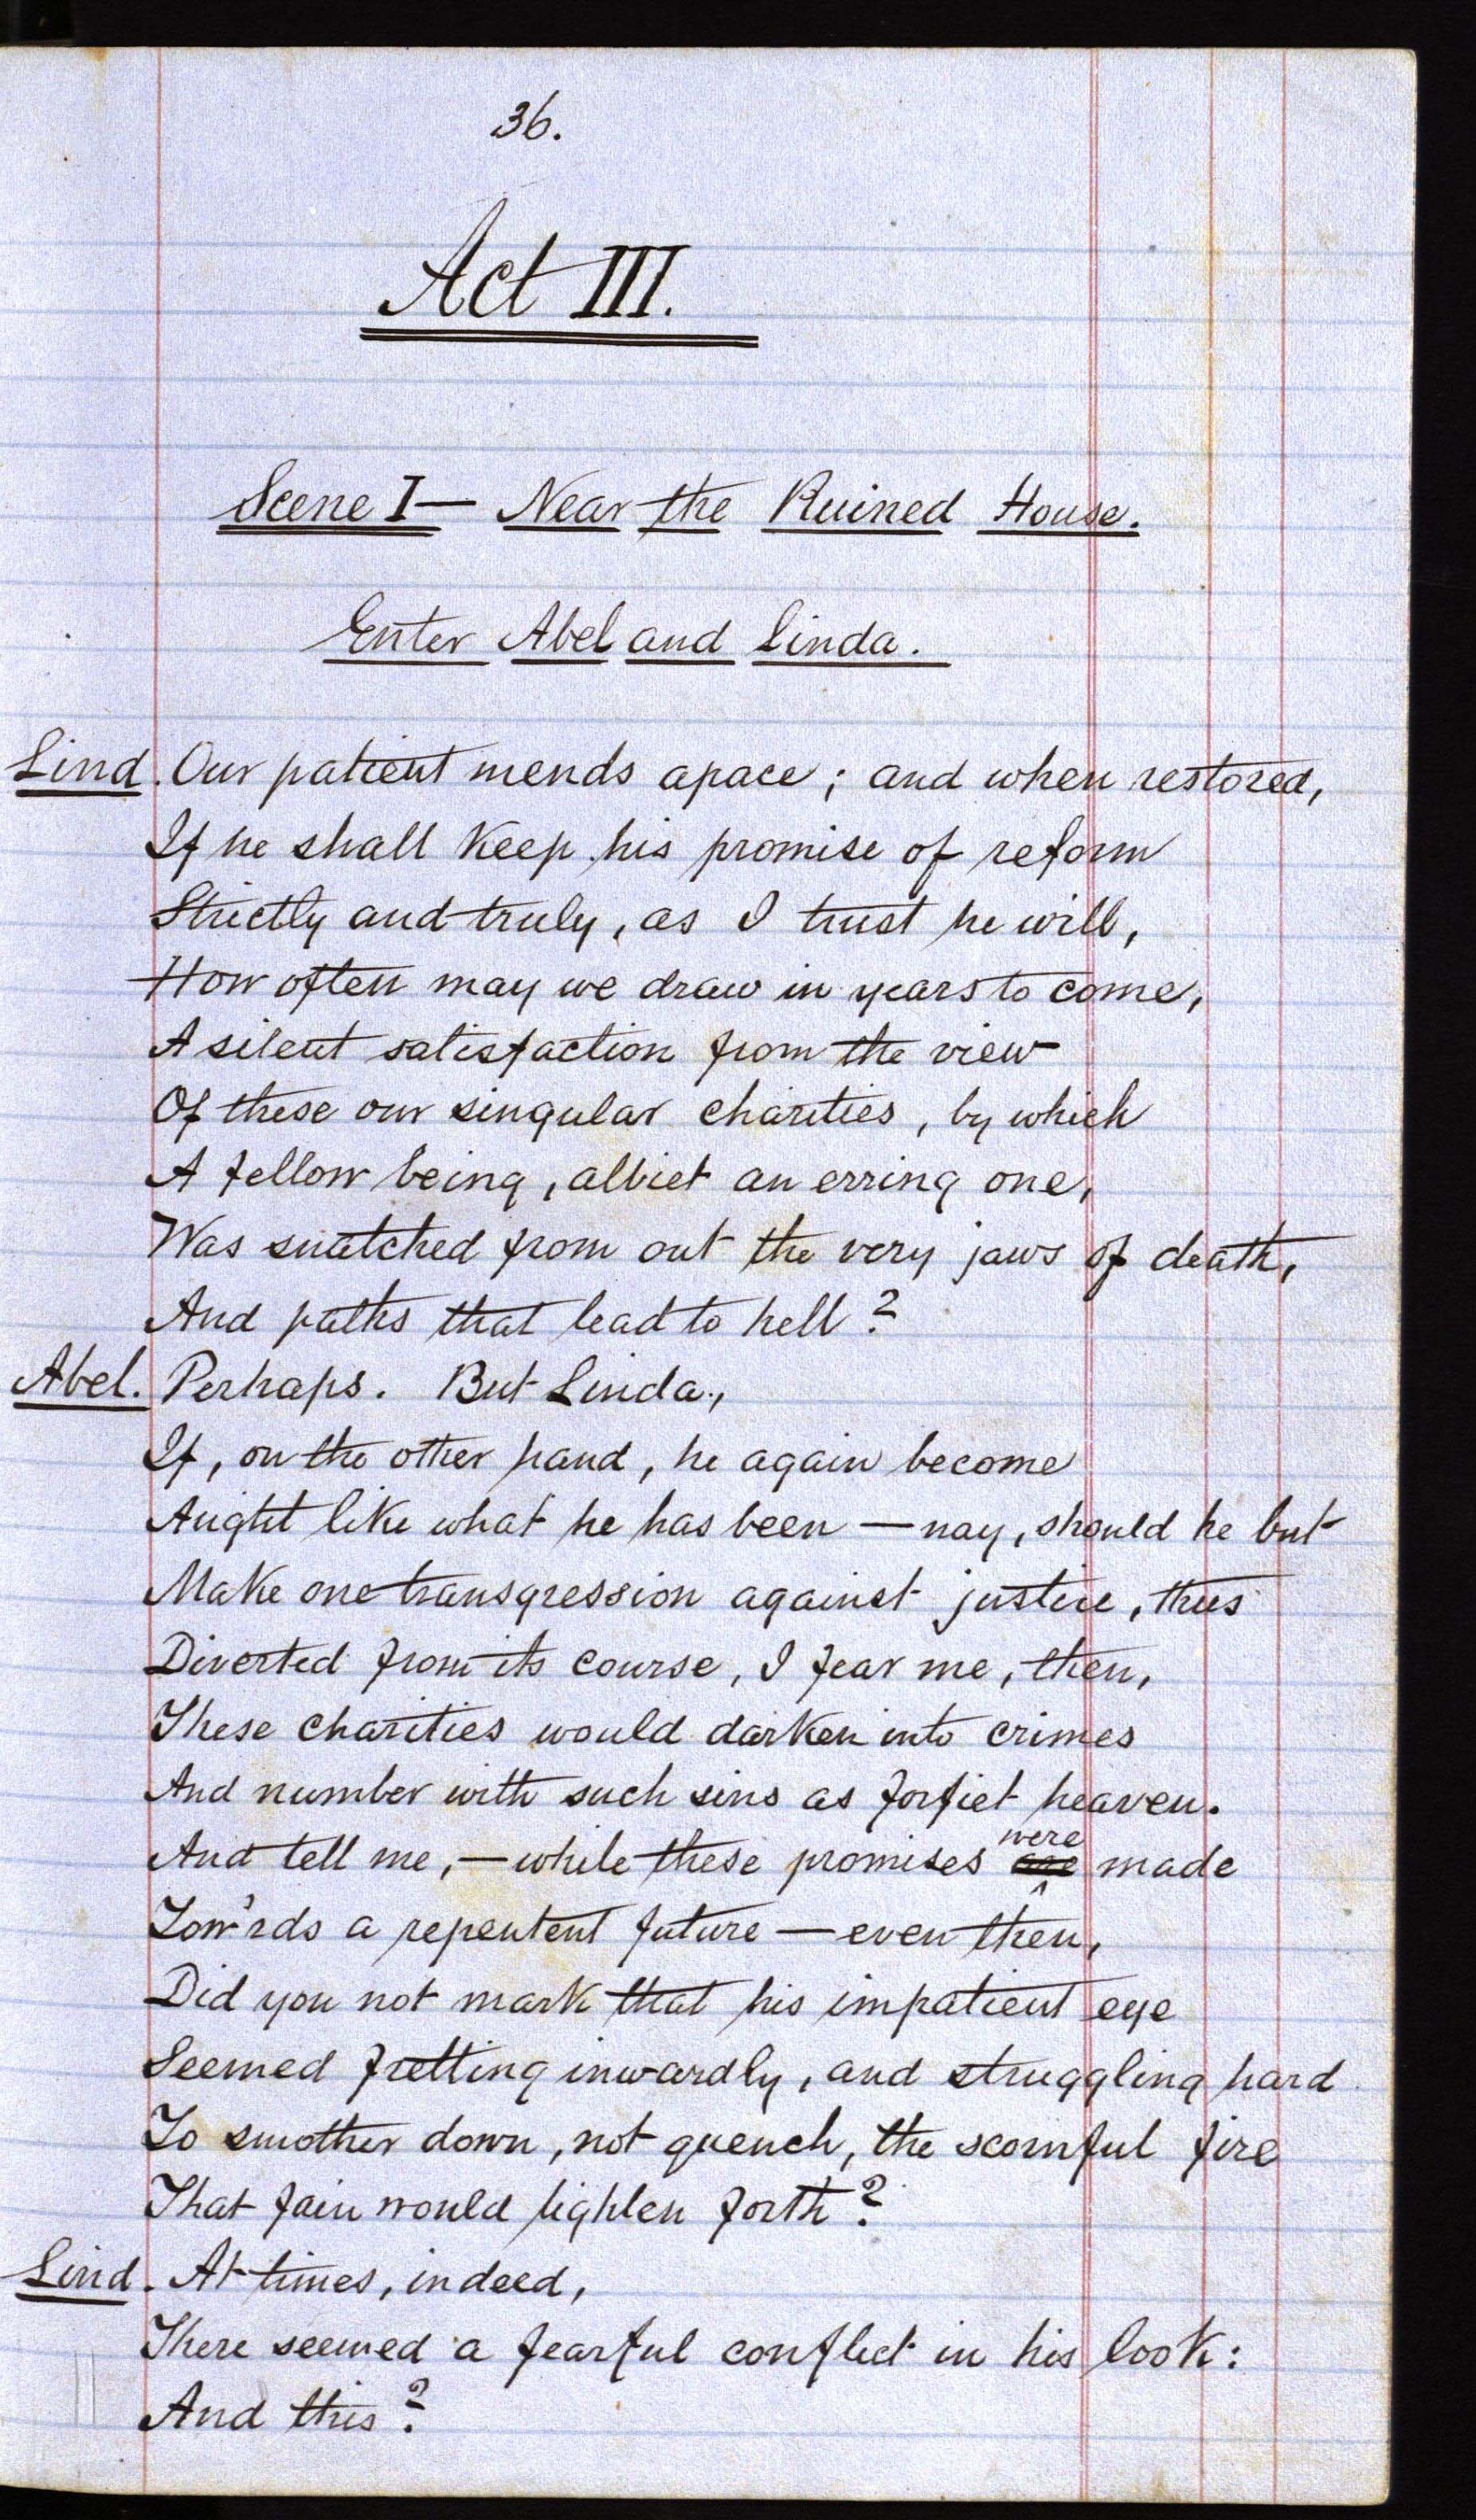 36.
Act III.
Scene I — Near the Ruined House.
Enter Abel and Linda.
Lind. Our patient mends apace; and when restored,
If he shall keep his promise of reform
Strictly and truly, as I trust he will,
How often may we draw in years to come,
A silent satisfaction from the view
Of these our singular charities, by which
A fellow being, albiet an erring one,
Was snatched from out the very jaws of death,
And paths that lead to hell?
Abel. Perhaps. But Linda,
If, on the other hand, he again become
Aught like what he has been — nay, should he but
Make one transgression against justice, thus
Diverted from its course, I fear me, then,
These charities would darken into crimes
And number with such sins as forfiet heaven.
And tell me, — while these promises were made
Tow'rds a repentent future — even then,
Did you not mark that his impatient eye
Seemed fretting inwardly, and struggling hard
To smother down, not quench, the scornful fire
That fain would lighten forth?
Lind. At times, indeed,
There seemed a fearful conflict in his look:
And this?